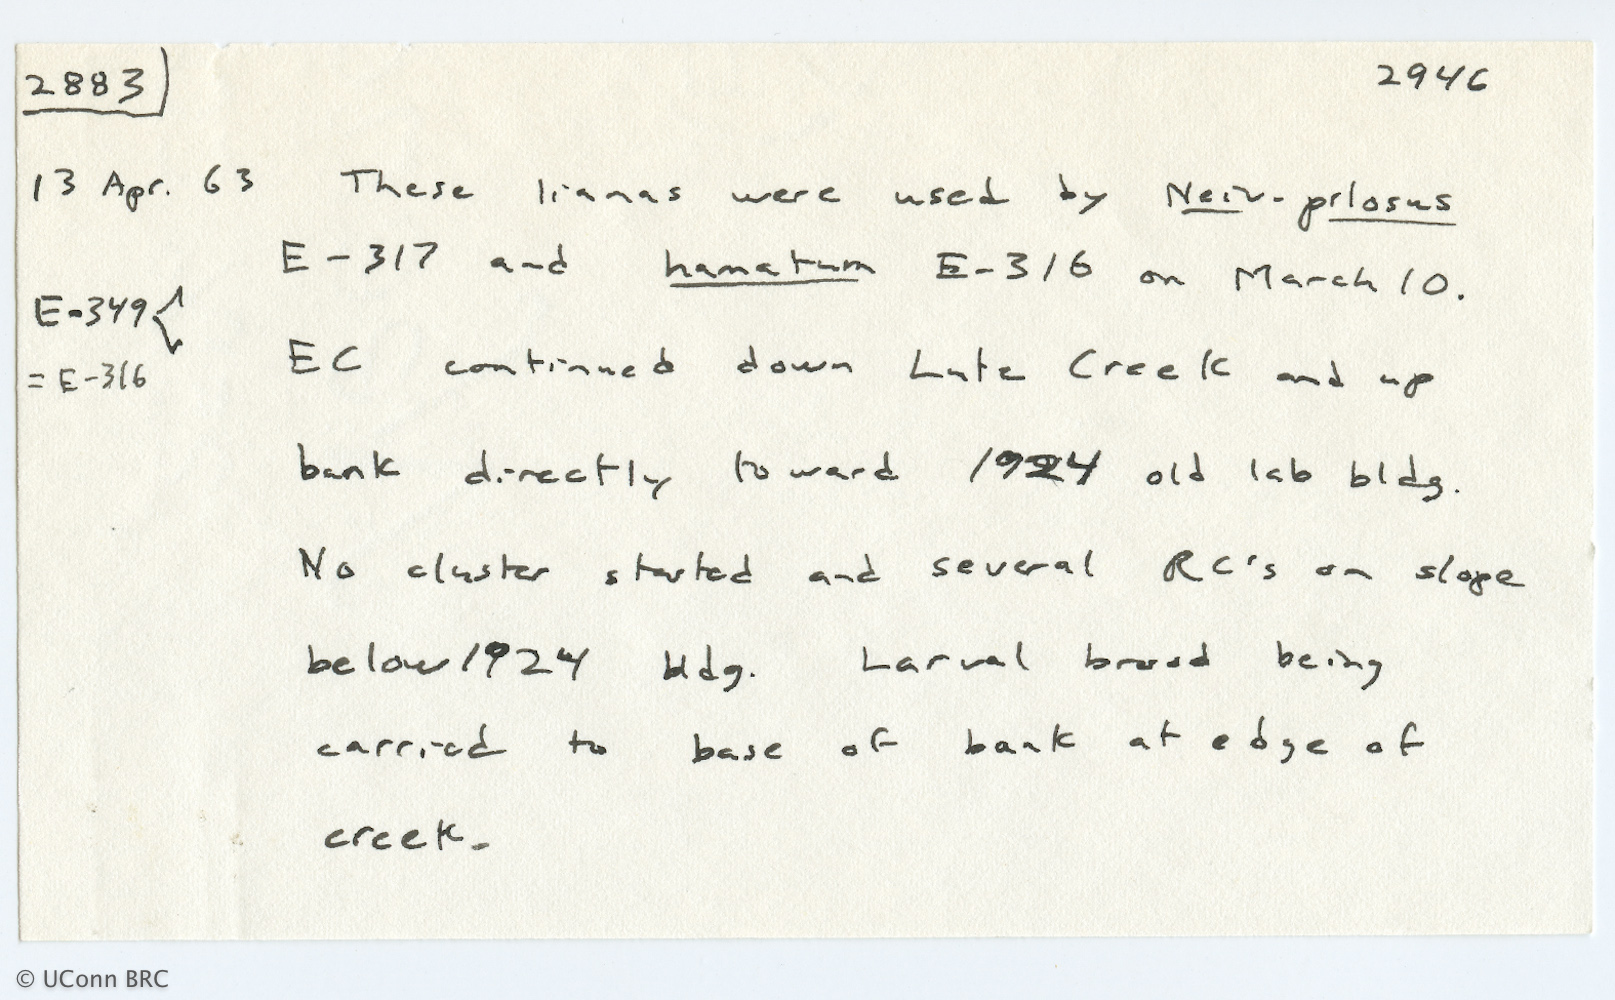 2883 2946
13 Apr. 63 These lianas were used by Neiv. pilosus
E-317 and hamatum E-316 on March 10.
E-349
EC continued down Lutz Creek and up
= E-316
bank directly toward 1924 old lab bldg.
No cluster started and several RC's on slope
below 1924 bldg. Larval brood being
carried to base of bank at edge of
creek.
© UConn BRC